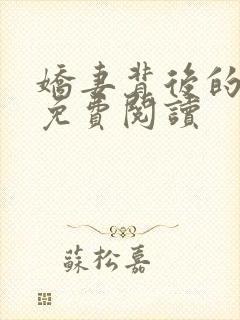 嬌妻背後的
免費閱讀
蘇松嘉